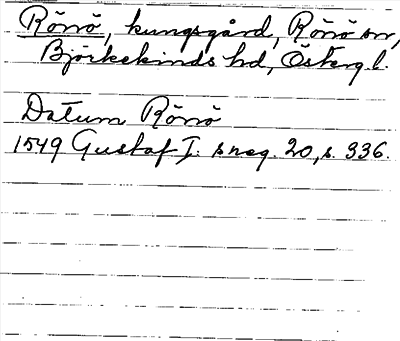 Rönö, kungsgård, Rönö sn,
Björkekinds hd, Österg.l.
Datum Rönö
1549 Gustaf I. s reg. 20, s. 336.